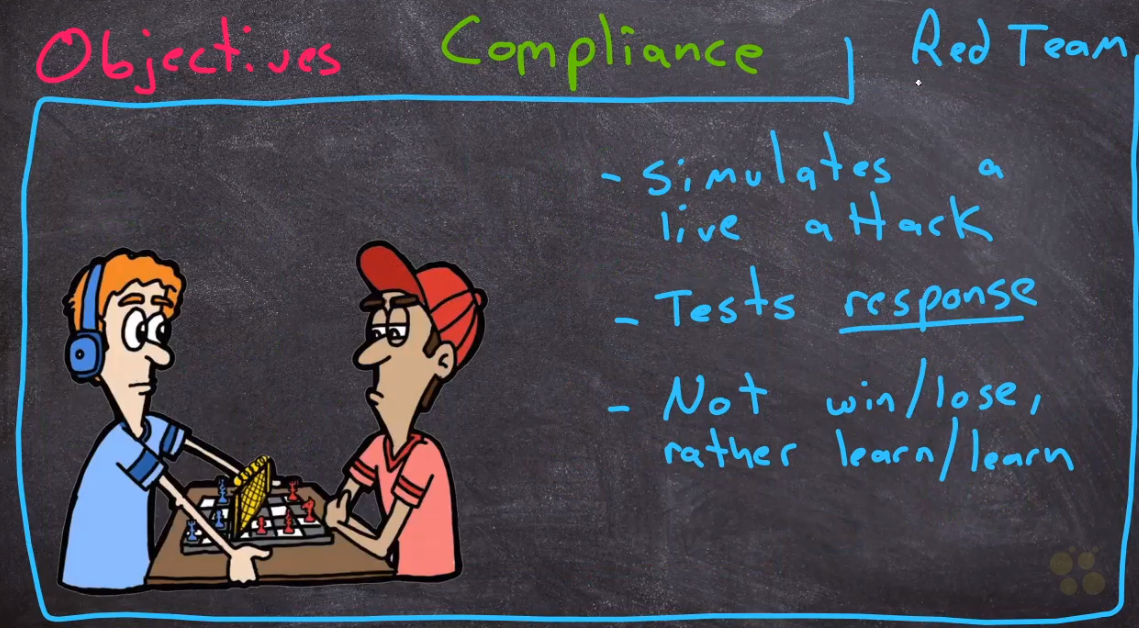 Objectives Compliance Red Team
- simulates a
live attack
- Tests response
- Not win/lose,
rather learn/learn